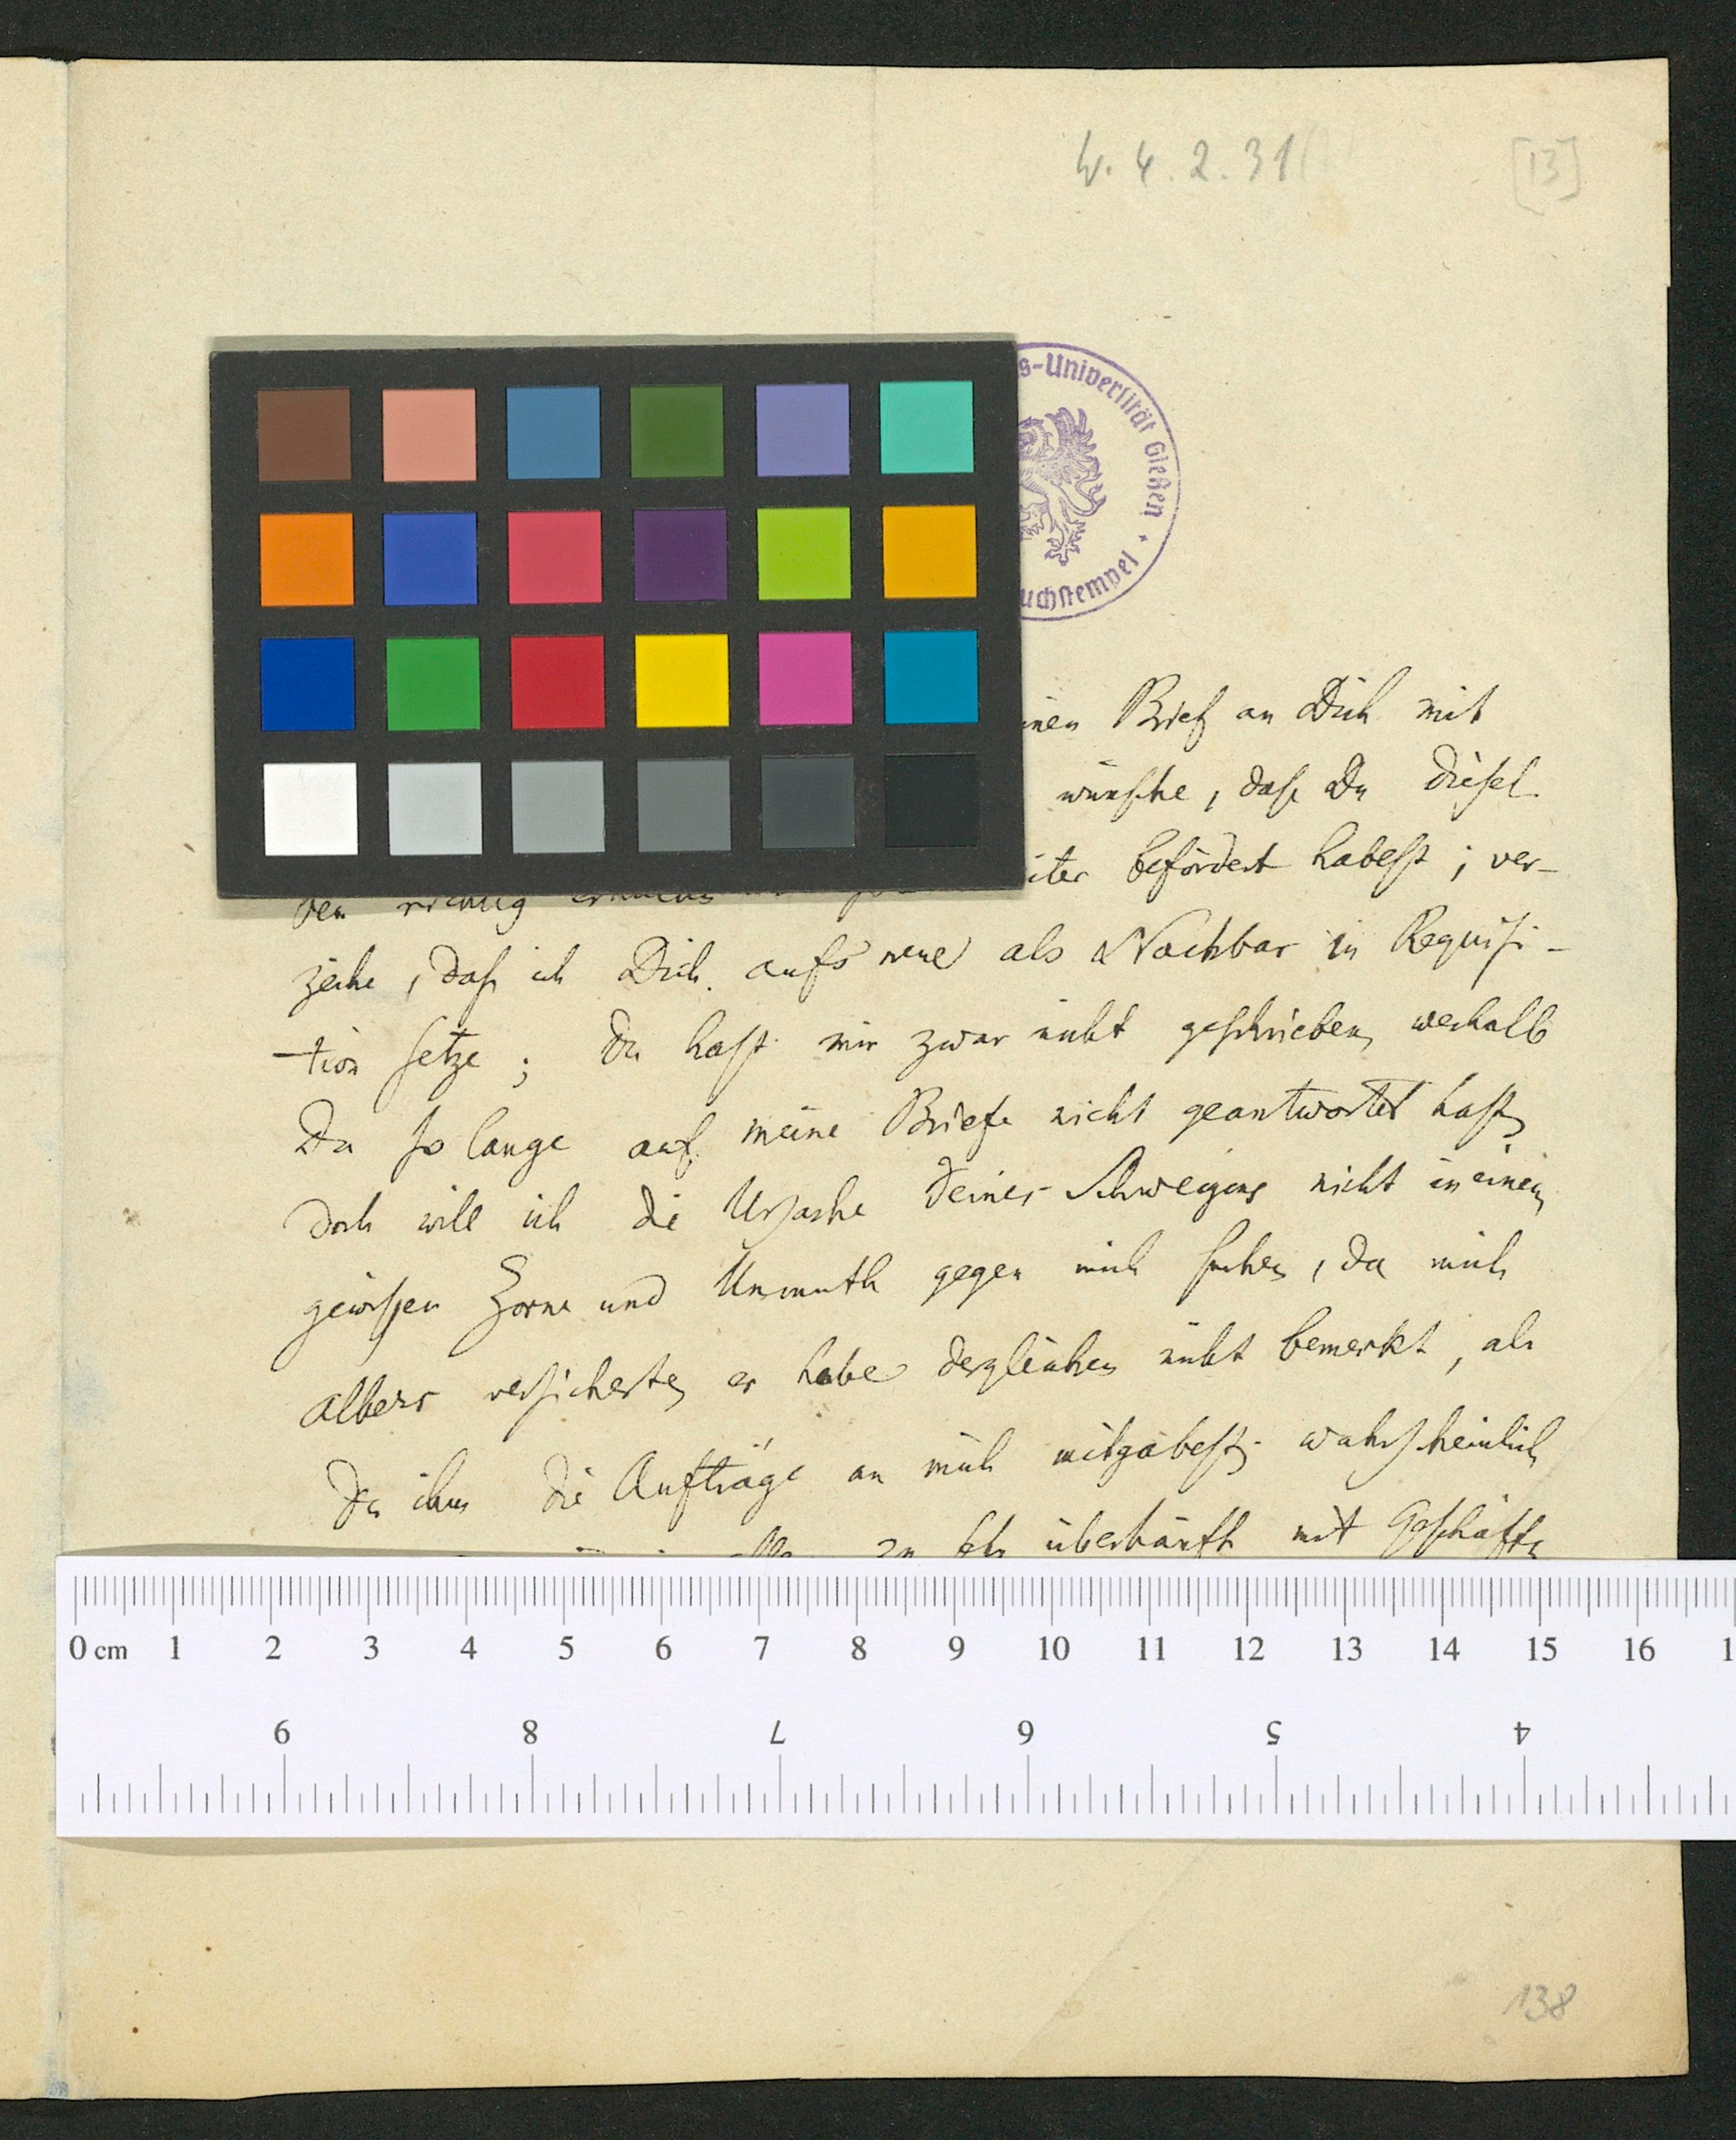 W. 4. 2. 31
[13]
s-Universität Gießen
uchstempel
inen Brief an Dich mit
wünsche, daß Du diesel
ben richtig iter befördert habest; ver-
zeihe, daß ich Dich aufs neue als Nachbar in Requisi-
tion setze; Du hast mir zwar nicht geschrieben, weshalb
Du so lange auf meine Briefe nicht geantwortet hast,
doch will ich die Ursache Deines Schweigens nicht in einem
gewissen Zorne und Unmuth gegen mich suchen, da mich
Albers versicherte, er habe dergleichen nicht bemerkt, als
Du ihm die Aufträge an mich mitgabest; wahrscheinlich
zu sehr überhäuft mit Geschäfte
0 cm 1 2 3 4 5 6 7 8 9 10 11 12 13 14 15 16 1
9 8 7 6 5 4
138